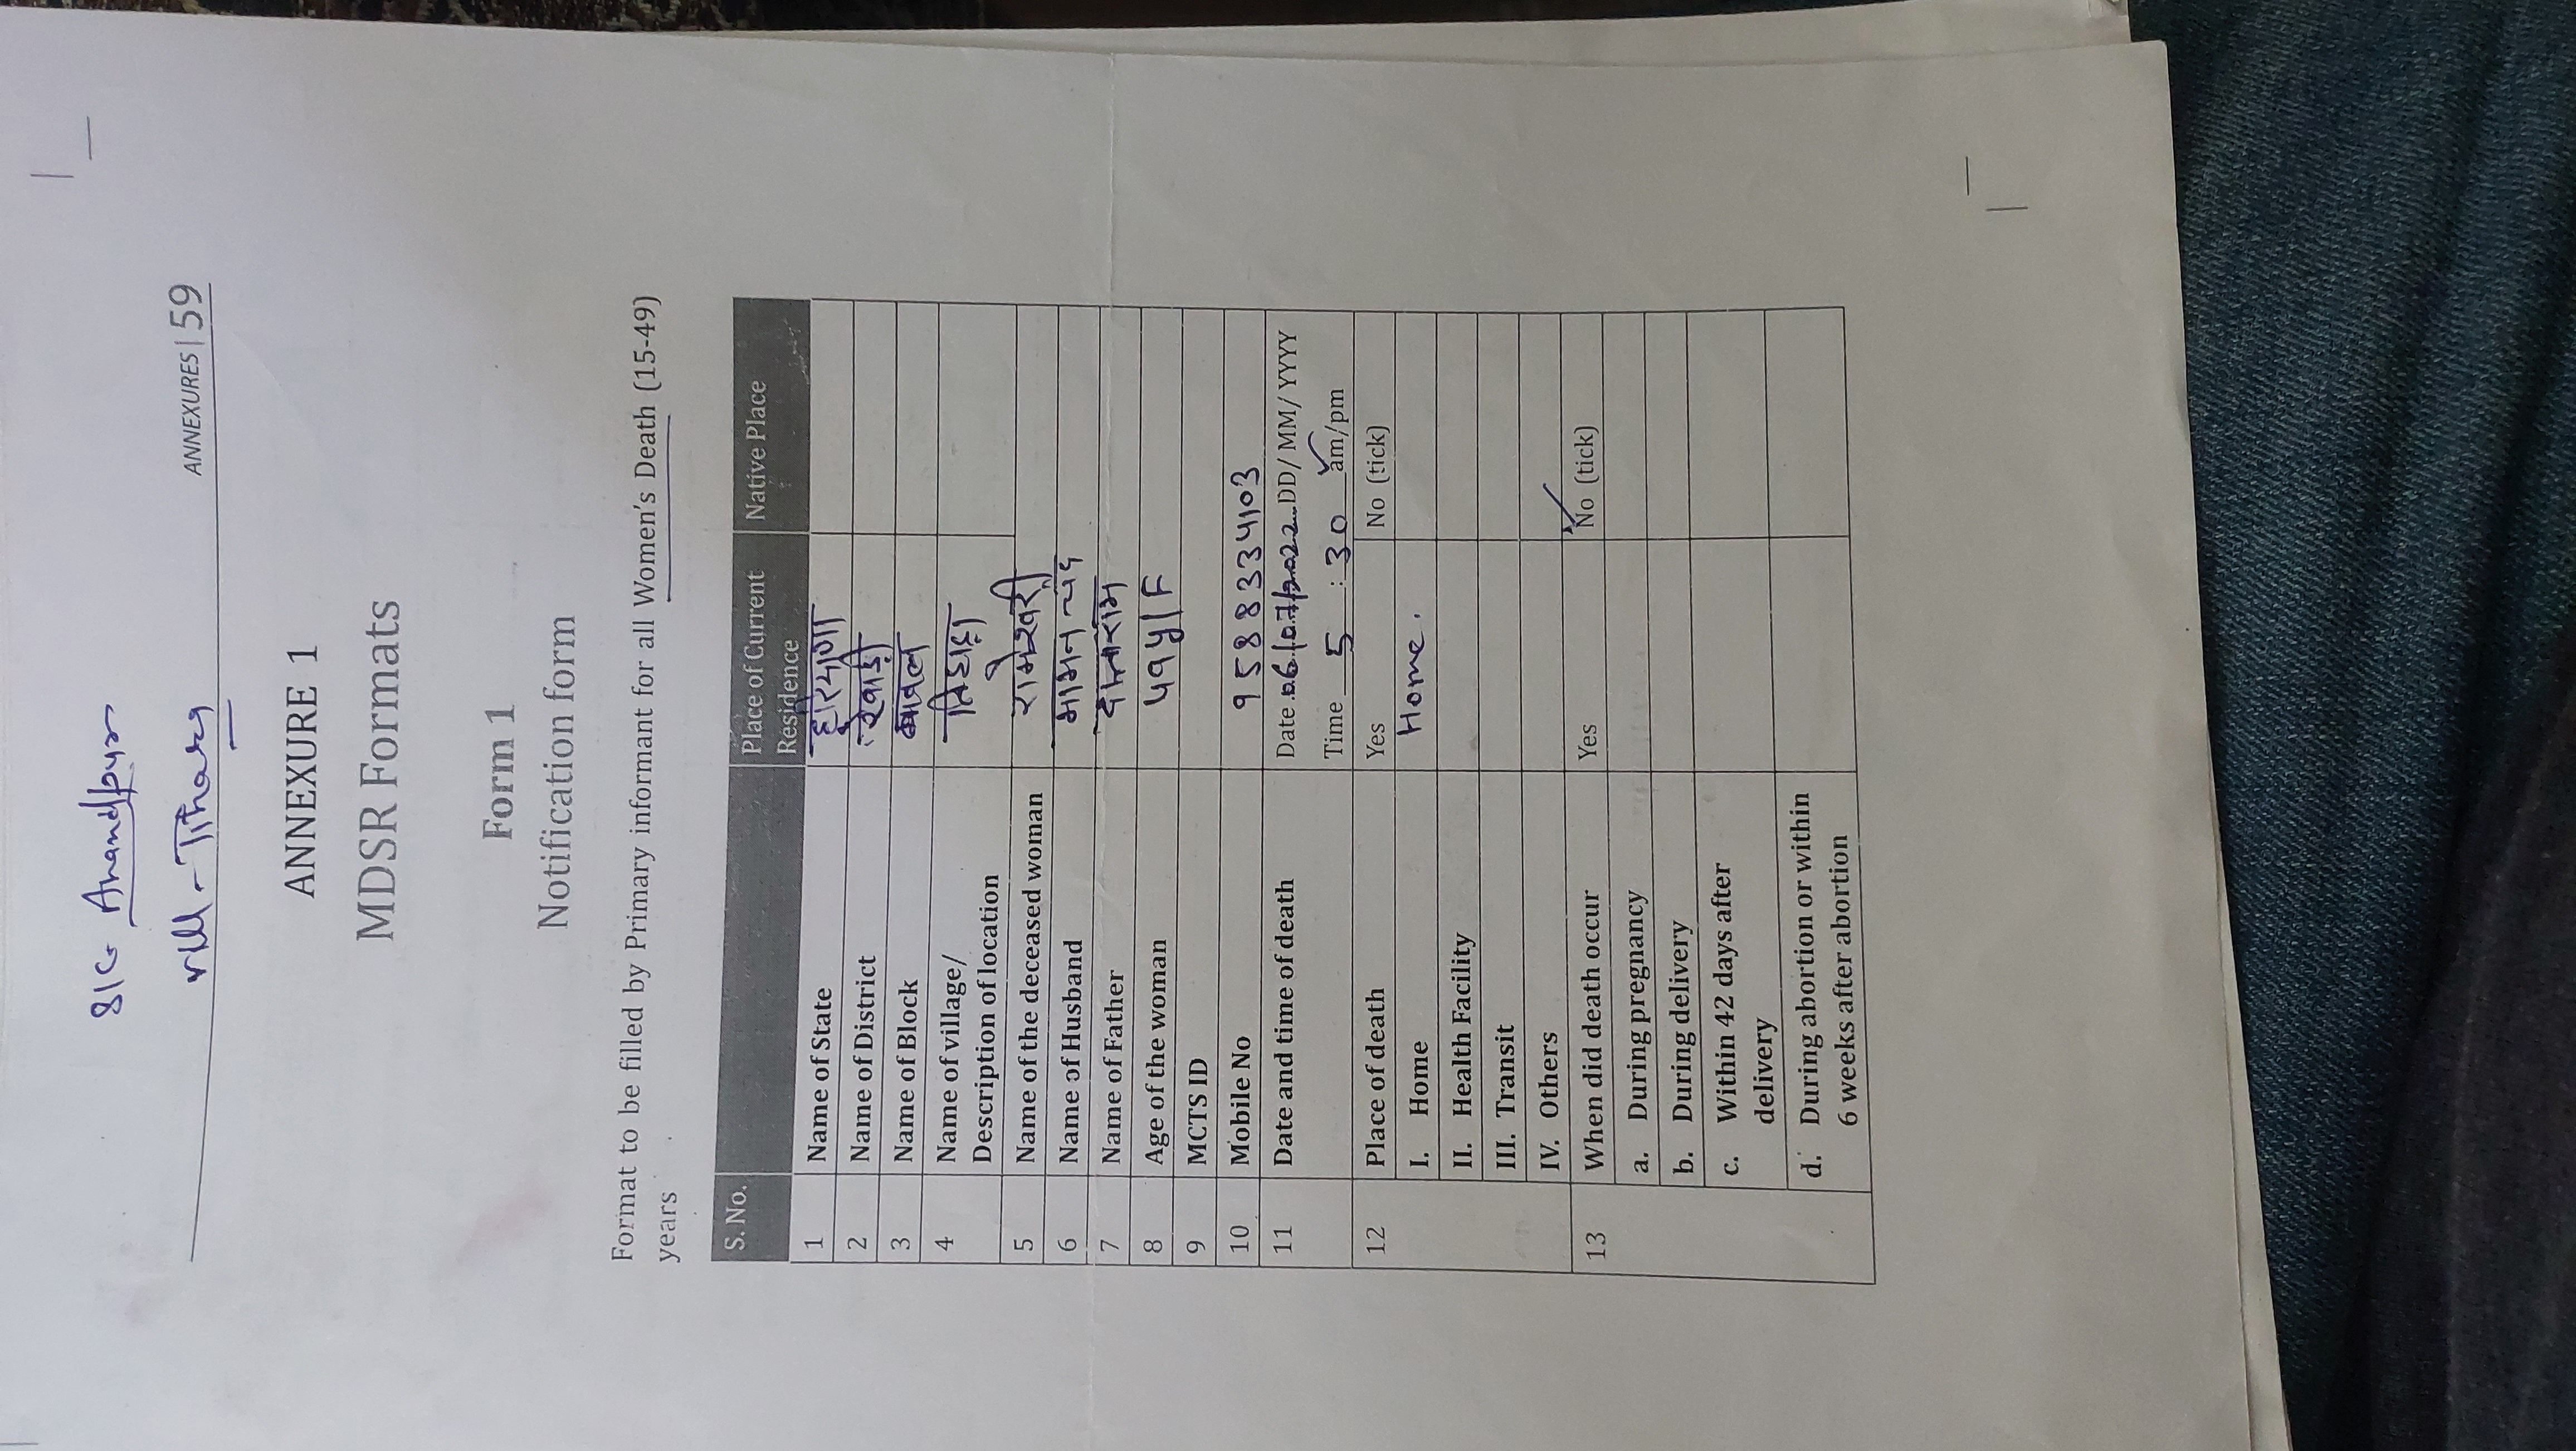 S/C Anandpur
Vill - Tihara
ANNEXURES | 59
ANNEXURE 1
MDSR Formats
Form 1
Notification form
Format to be filled by Primary informant for all Women's Death (15-49)
years
S. No. Place of Current Residence Native Place
1 Name of State हरियाणा
2 Name of District रेवाड़ी
3 Name of Block बावल
4 Name of village/ तिहाड़ा
Description of location
5 Name of the deceased woman रामेश्वरी
6 Name of Husband मामन चंद
7 Name of Father
8 Age of the woman
9 MCTS ID
10 Mobile No 9588334103
11 Date and time of death Date 06/07/2022 DD/ MM/ YYYY
Time 5 : 30 am/pm
12 Place of death Yes No (tick)
I. Home Home.
II. Health Facility
III. Transit
IV. Others
13 When did death occur Yes No (tick)
a. During pregnancy
b. During delivery
c. Within 42 days after
delivery
d. During abortion or within
6 weeks after abortion